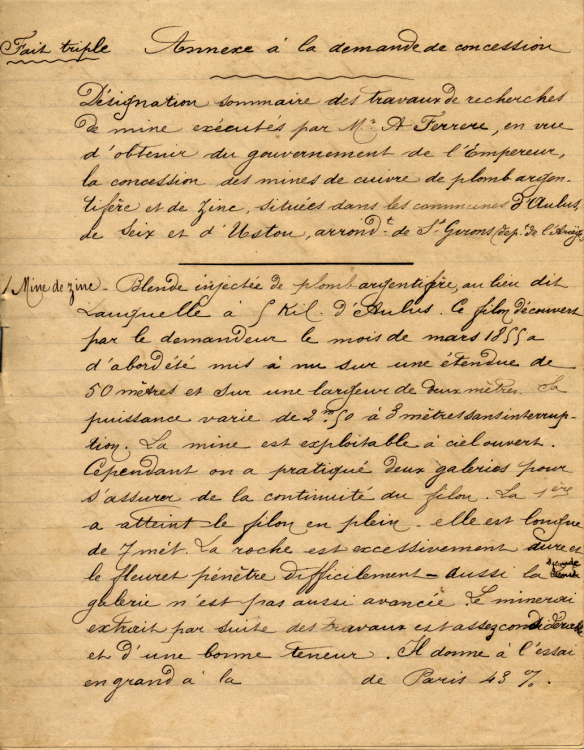 Fait triple Annexe à la demande de concession
Désignation sommaire des travaux de recherches
de mine exécutés par Mr. A Ferrere, en vue
d'obtenir du gouvernement de l'Empereur,
la concession des mines de cuivre de plomb argen-
tifère et de zinc, situées dans les communes d'Aulus,
de Seix et d'Ustou, arrondt. de St. Girons, dép. de l'Ariège
1 Mine de zinc - Blende injectée de plomb argentifère, au lieu dit
Lauquelle à 5 Kil. d'Aulus. Ce filon découvert
par le demandeur le mois de mars 1855 a
d'abord été mis à nu sur une étendue de
50 mètres et sur une largeur de deux mètres. Sa
puissance varie de 2m50 à 3 mètres sans interrup-
tion. La mine est exploitable à ciel ouvert.
Cépendant on a pratiqué deux galeries pour
s'assurer de la continuité du filon. La 1ère
a atteint le filon en plein. elle est longue
de 7 mét. La roche est excessivement dure et
le fleuret pénêtre difficilement - aussi la seconde
galerie n'est pas aussi avancée. Le minerai
extrait par suite des travaux est assez considérable
et d'une bonne teneur. Il donne à l'essai
en grand à la de Paris 43 %.